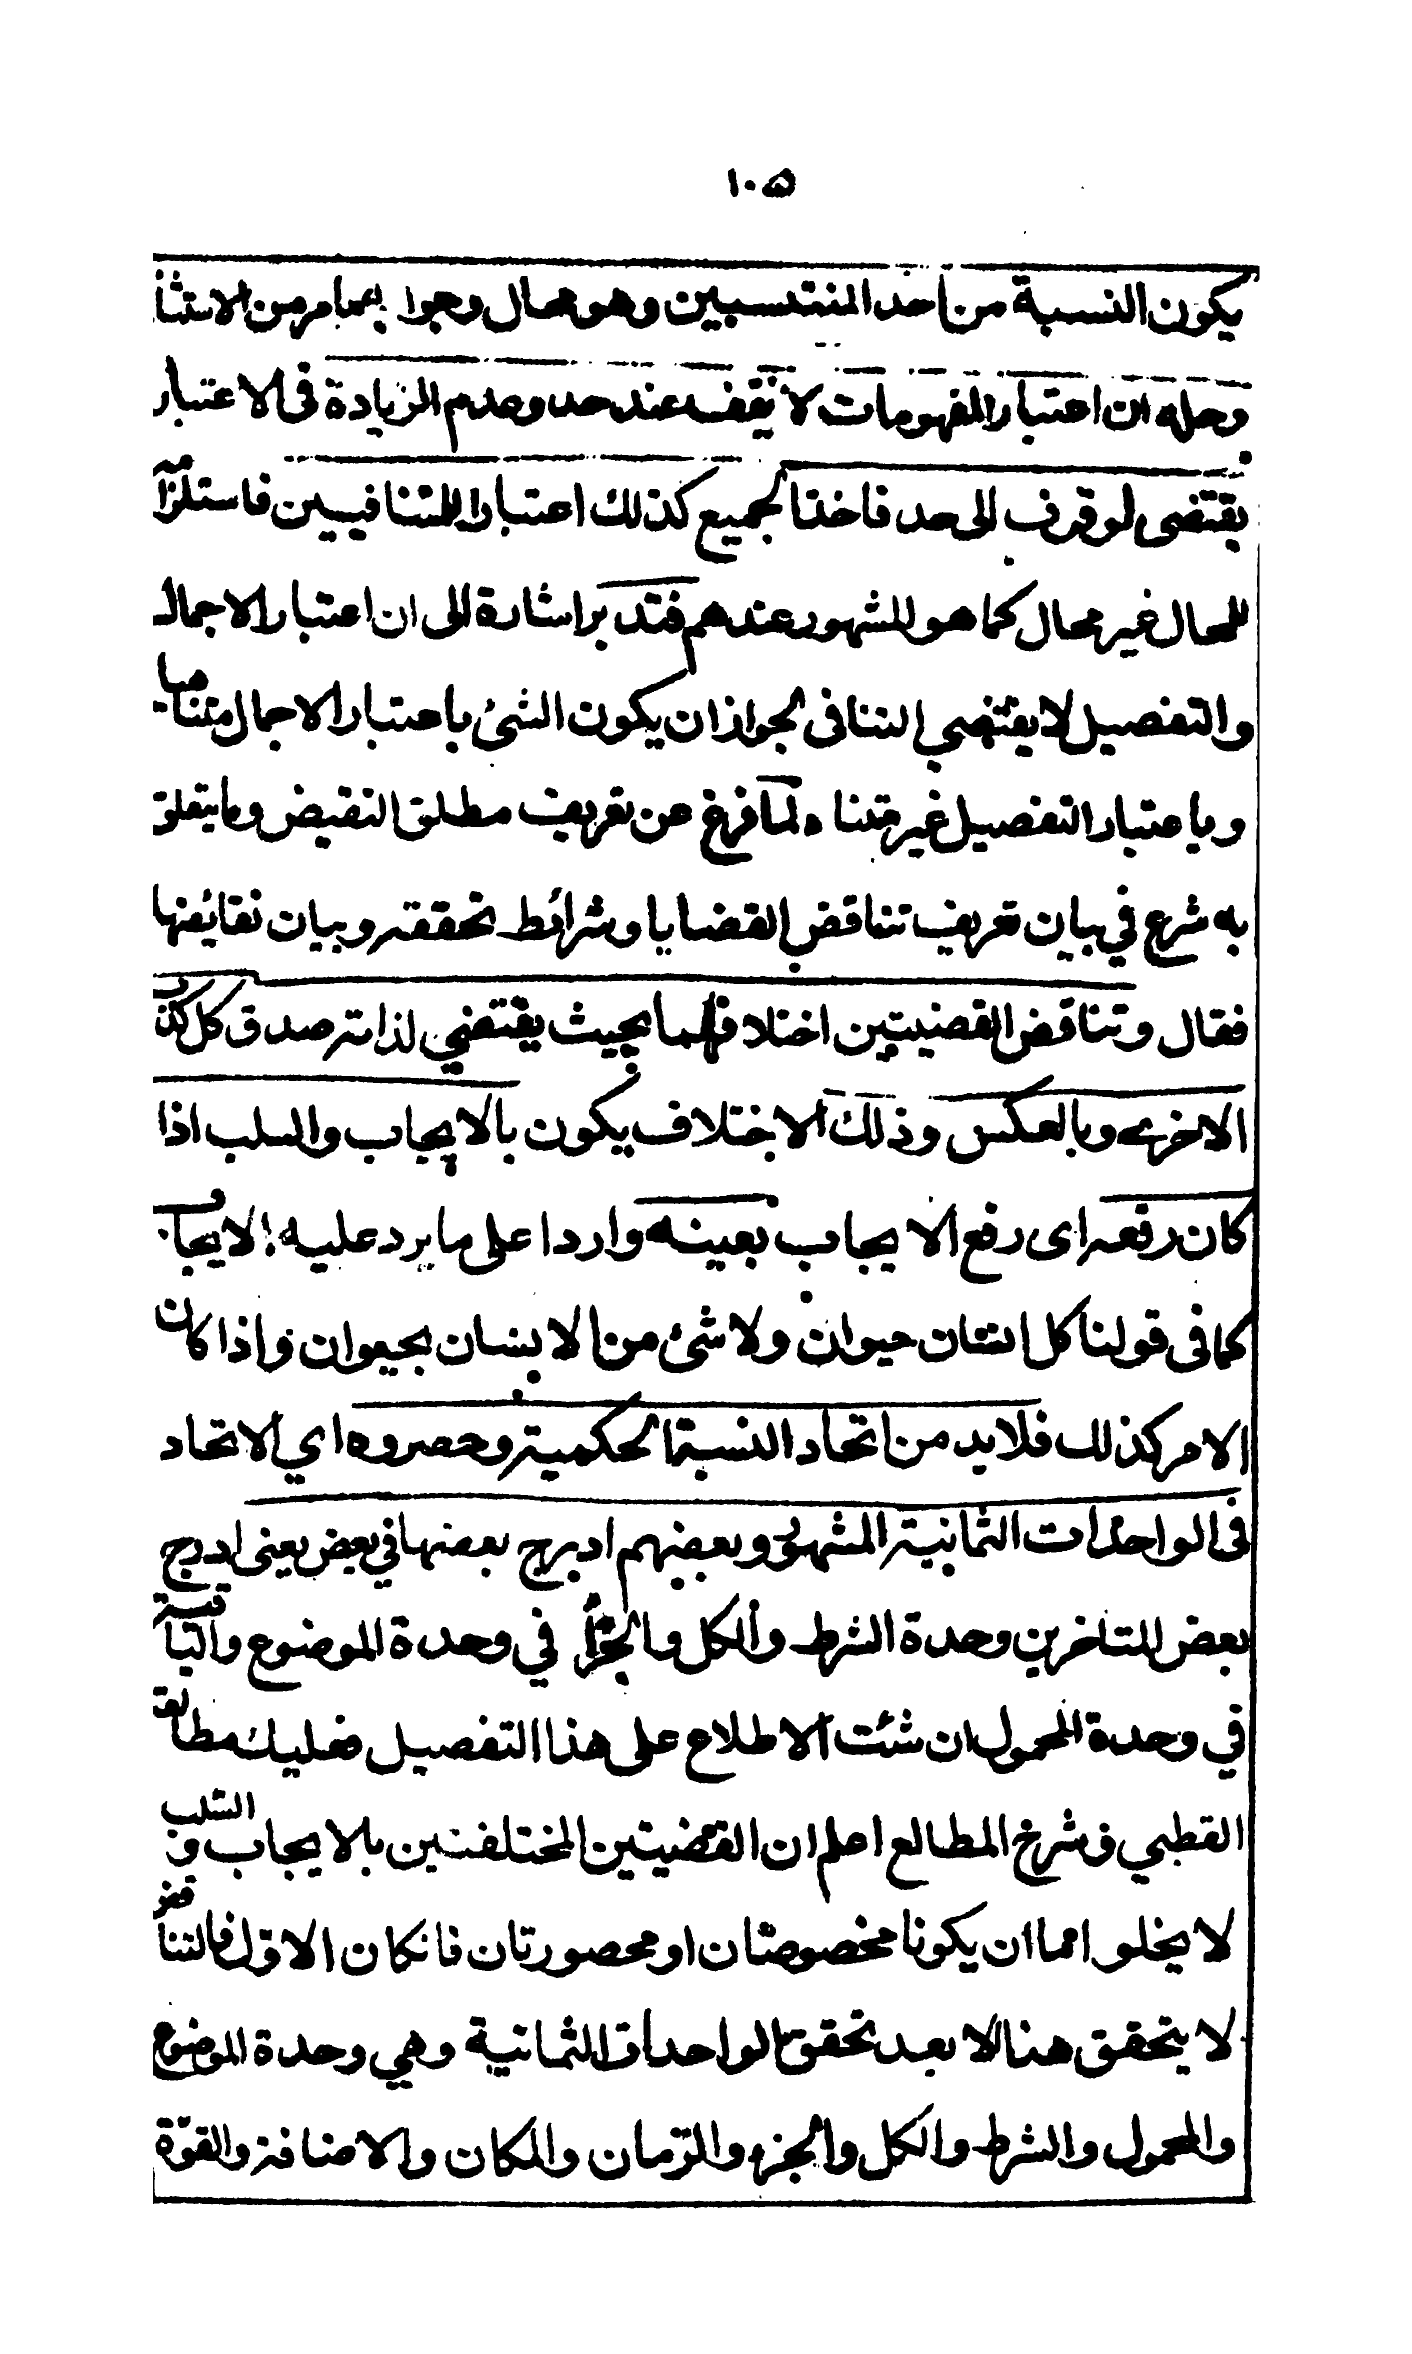 ١٠٥
يكون النسبة من احد المنتسبين وهو محال وجوا بما مر من الاستثنا
وحله ان اعتبار المفهومات لا يقف عند حد وعدم الزيادة فى الاعتبار
يقتضى لوقوف الى حد فاخذنا الجميع كذلك اعتبار المتنافيين فاستلزا
المحال غير محال كما هو المشهور عندهم فتدبر اشارة الى ان اعتبار الاجمال
والتفصيل لا يقتضي التنافى لجواز ان يكون الشئ باعتبار الاجمال متناهيا
وباعتبار التفصيل غير متناه لما فرغ عن تعريف مطلق النقيض وما يتعلق
به شرع في بيان تعريف تناقض القضايا وشرائط تحققه وبيان نقائضها
فقال وتناقض القضيتين اختلافهما بحيث يقتضي لذاته صدق كل كذب
الاخرى وبالعكس وذلك الاختلاف يكون بالايجاب والسلب اذا
كان رفعه اى رفع الايجاب بعينه واردا على ما يرد عليه الايجاب
كما فى قولنا كل انسان حيوان ولا شئ من الانسان بحيوان واذا كان
الامر كذلك فلا بد من اتحاد النسبة الحكمية وحصروه اي الاتحاد
فى الواحدات الثمانية المشهورة وبعضهم ادرج بعضها في بعض يعنى ادرج
بعض المتاخرين وحدة الشرط والكل والجزأ في وحدة الموضوع والباقية
في وحدة المحمول ان شئت الاطلاع على هذا التفصيل فعليك مطالعة
القطبي فى شرح المطالع اعلم ان القضيتين المختلفتين بالايجاب و السلب
لا يخلو اما ان يكونا مخصوصتان او محصورتان فانكان الاوّل فالتناقض
لا يتحقق هنا الا بعد تحقق الواحدات الثمانية وهي وحدة الموضوع
والمحمول والشرط والكل والجزء والزمان والمكان والاضافة والقوّة